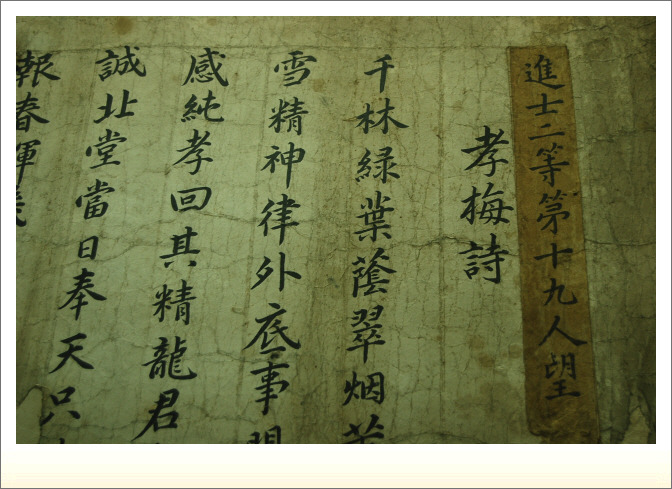 進士二等第十九人望
孝梅詩
千林緑葉蔭翠烟
雪精神律外底事
感純孝回其精龍君
誠北堂當日奉天只
報春暉